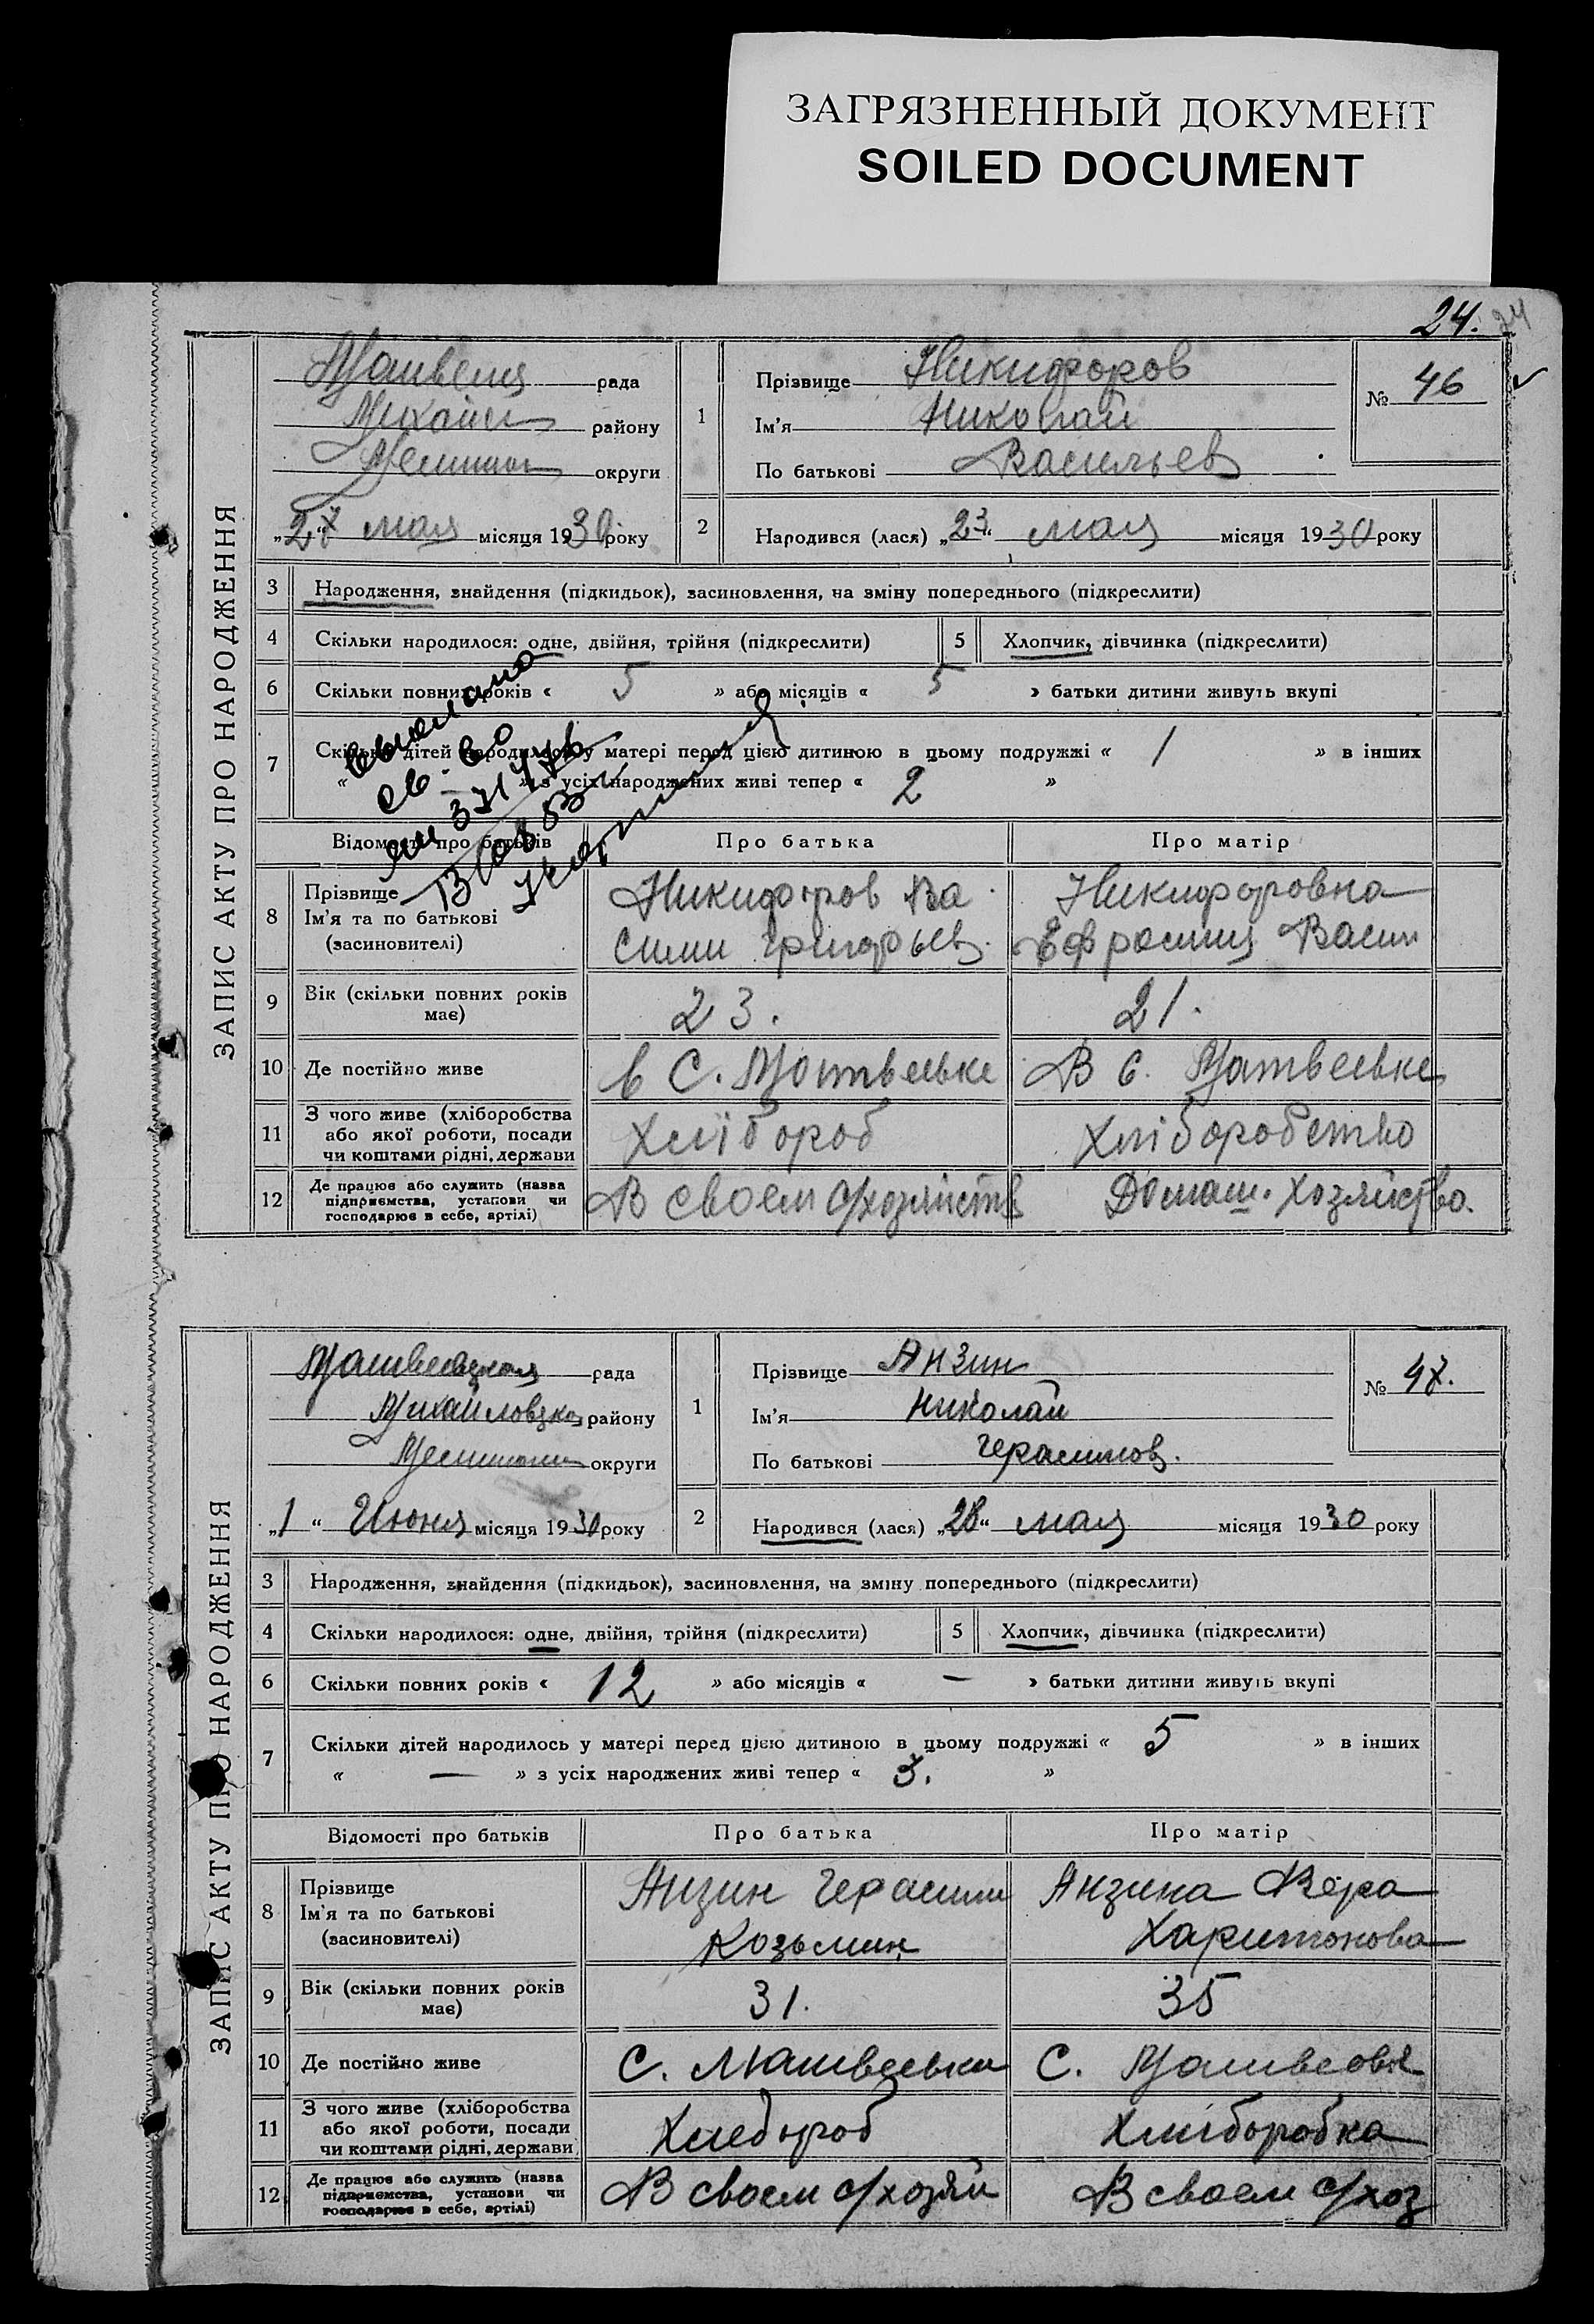 ЗАГРЯЗНЕННЫЙ ДОКУМЕНТ
SOILED DOCUMENT
24. 24
ЗАПИС АКТУ ПРО НАРОДЖЕННЯ
рада
району
округи
„27“ мая місяця 1930 року
1
Прізвище Никифоров
Ім'я Николай
По батькові Васильев
№ 46
2
Народився (лася) „23“ мая місяця 1930 року
3 Народження, знайдення (підкидьок), засиновлення, на зміну попереднього (підкреслити)
4 Скільки народилося: одне, двійня, трійня (підкреслити) 5 Хлопчик, дівчинка (підкреслити)
6 Скільки повних років « 5 » або місяців « 5 » батьки дитини живуть вкупі
7 Скільки дітей народилось у матері перед цією дитиною в цьому подружжі « 1 » в інших
« » з усіх народжених живі тепер « 2 »
Відомості про батьків Про батька Про матір
8 Прізвище Ім'я та по батькові (засиновителі)
Никифоров Ва
сили Григорьев
Никифоровна
Ефросиния Васил
9 Вік (скільки повних років має) 23. 21.
10 Де постійно живе в С. Мотвеевке В С. Матвеевке
11 З чого живе (хліборобства або якої роботи, посади чи коштами рідні, держави Хлібороб Хліборобство
12 Де працює або служить (назва підприємства, установи чи господарює в себе, артілі) В своем с/хозяйств Домаш. хозяйство.
ЗАПИС АКТУ ПРО НАРОДЖЕННЯ
рада
району
округи
„1“ Июня місяця 1930 року
1
Прізвище Анзин
Ім'я Николай
По батькові Герасимов.
№ 47.
2
Народився (лася) „28“ мая місяця 1930 року
3 Народження, знайдення (підкидьок), засиновлення, на зміну попереднього (підкреслити)
4 Скільки народилося: одне, двійня, трійня (підкреслити) 5 Хлопчик, дівчинка (підкреслити)
6 Скільки повних років « 12 » або місяців « — » батьки дитини живуть вкупі
7 Скільки дітей народилось у матері перед цією дитиною в цьому подружжі « 5 » в інших
« — » з усіх народжених живі тепер « 3. »
Відомості про батьків Про батька Про матір
8 Прізвище Ім'я та по батькові (засиновителі)
Анзин Герасим
Козьмин
Анзина Вера
Харитонова
9 Вік (скільки повних років має) 31. 35
10 Де постійно живе С. Матвеевки С.
11 З чого живе (хліборобства або якої роботи, посади чи коштами рідні, держави Хлебороб Хліборобка
12 Де працює або служить (назва підприємства, установи чи господарює в себе, артілі) В своем с/хозяй В своем с/хоз